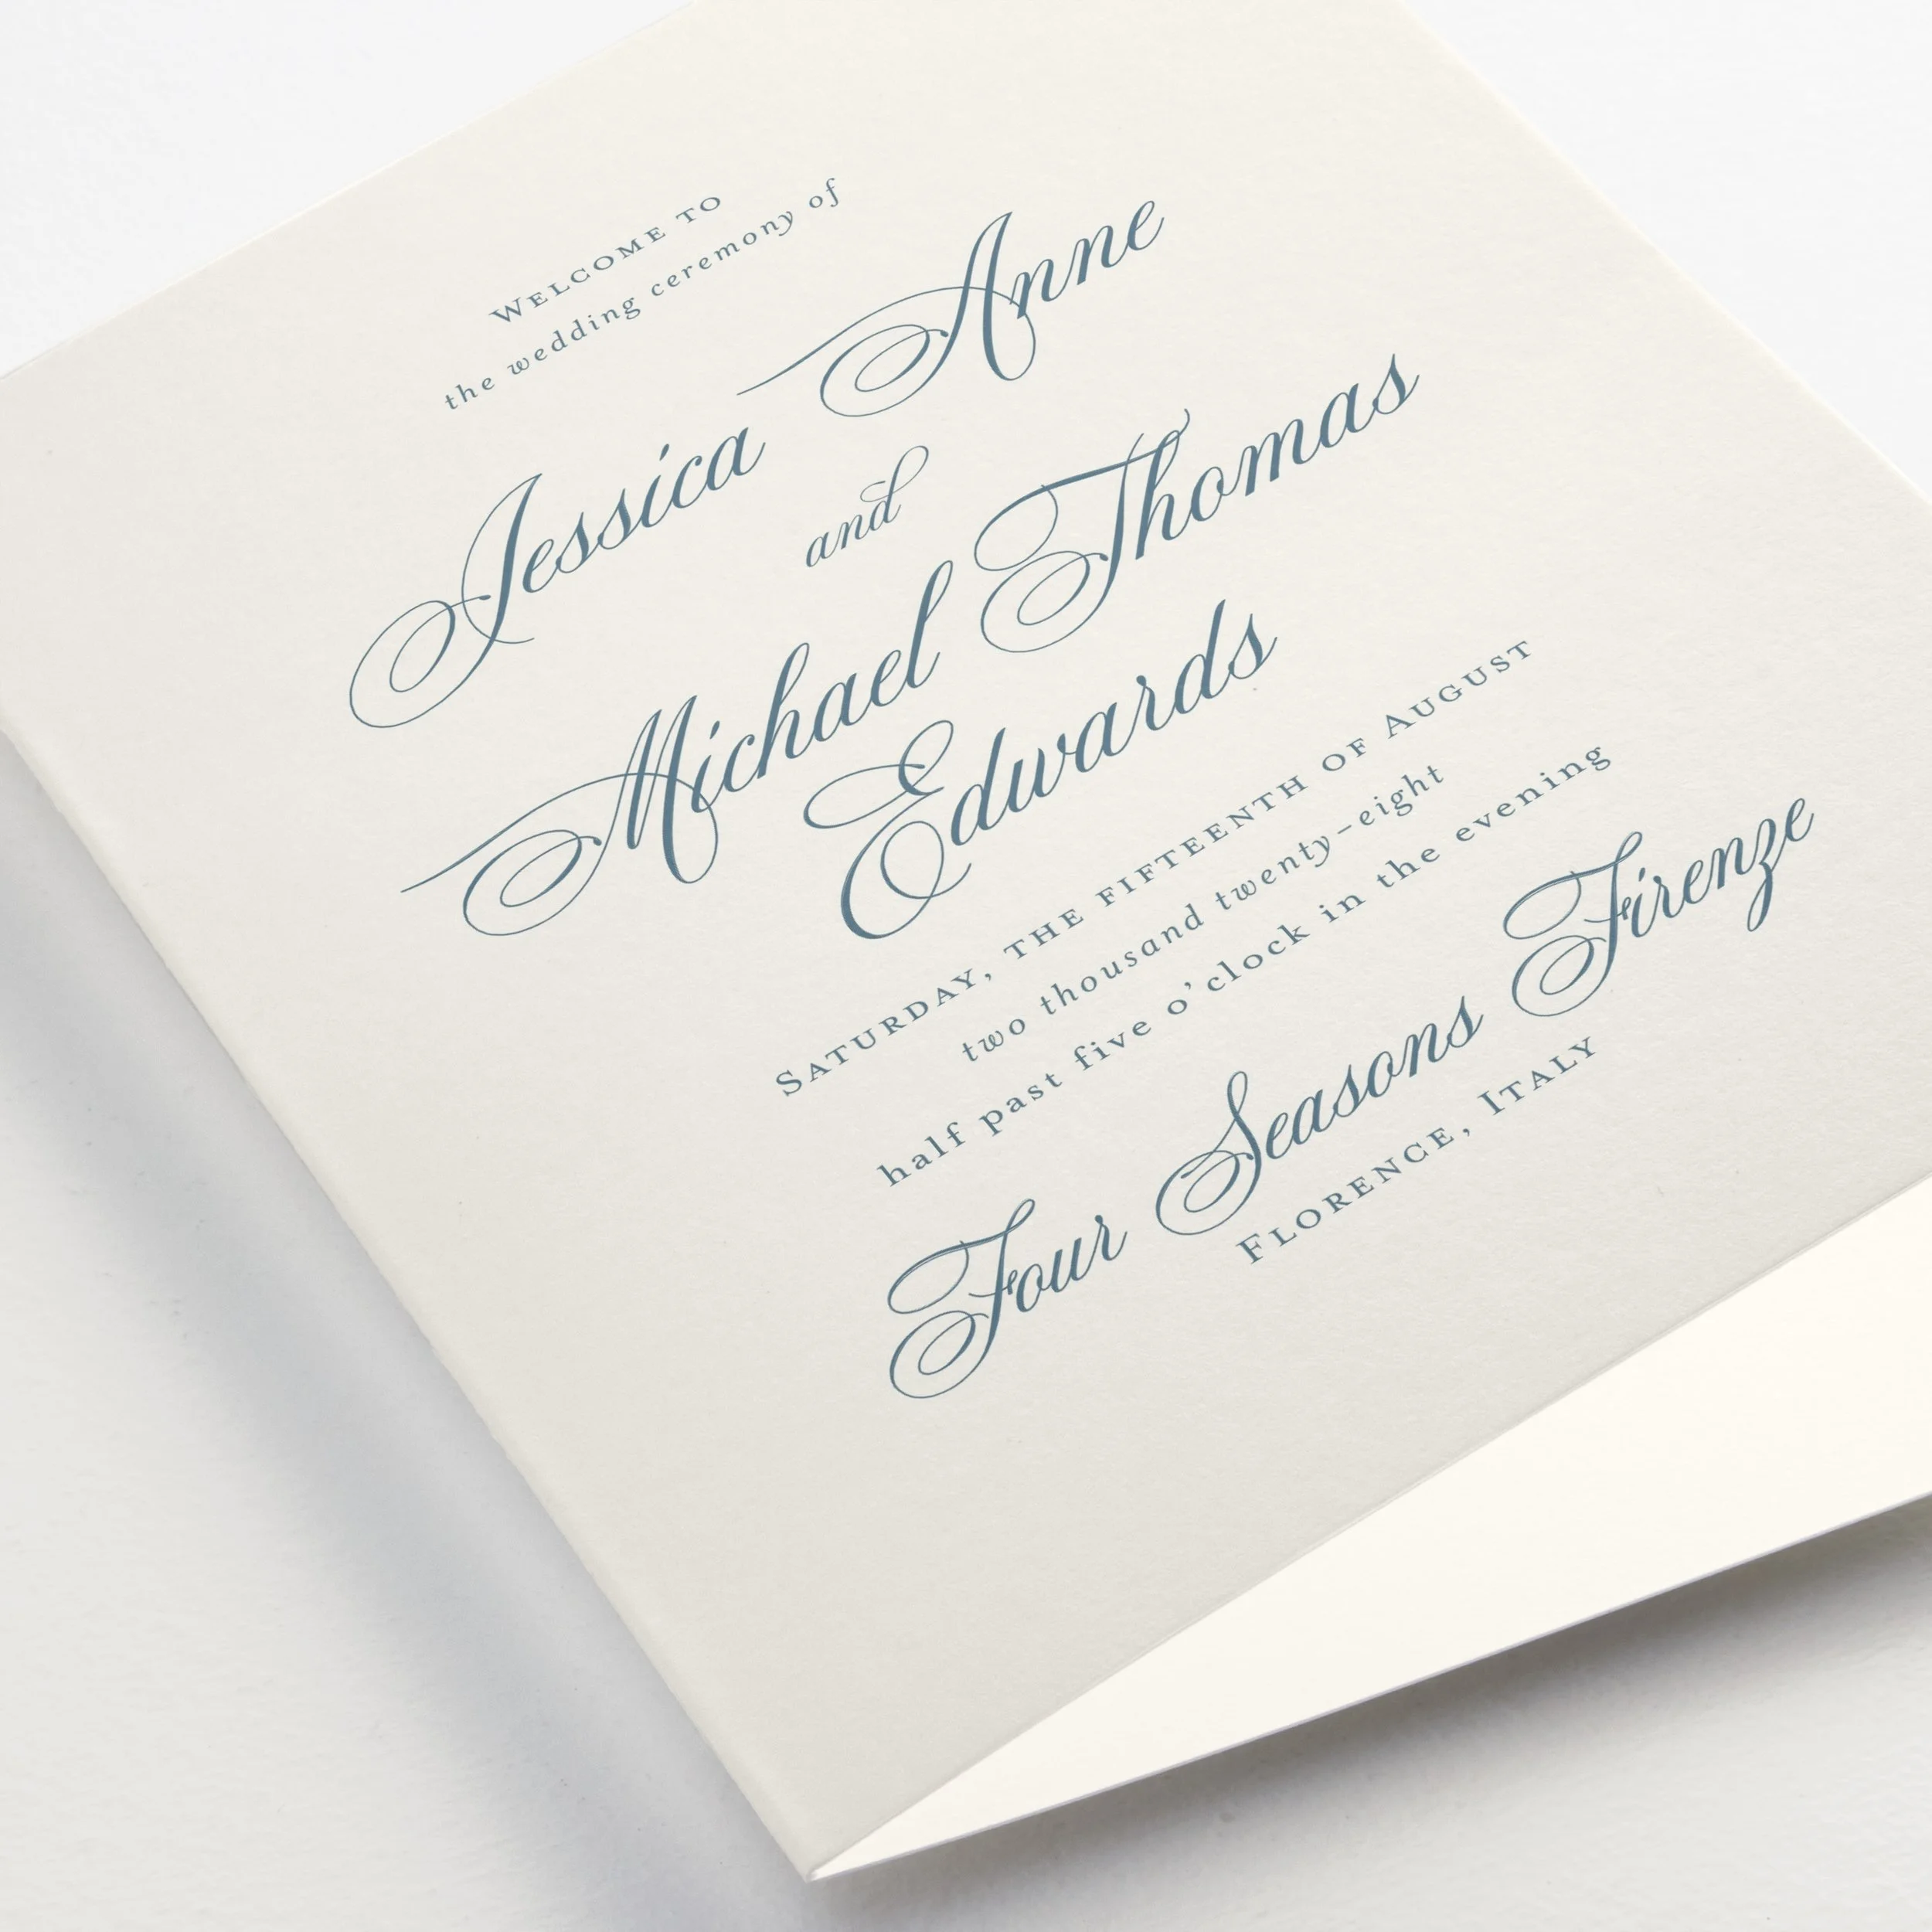 Welcome to
the wedding ceremony of
Jessica Anne
and
Michael Thomas
Edwards
Saturday, the fifteenth of August
two thousand twenty-eight
half past five o'clock in the evening
Four Seasons Firenze
Florence, Italy